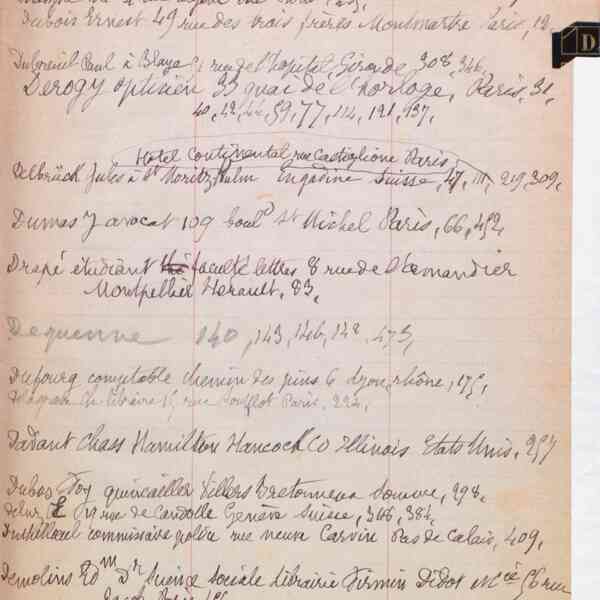 Dubois Ernest 49 rue des trois frères Montmartre Paris, 12
Dubreuil Paul à Blaye rue de l'hopital, Gironde, 308, 346,
Derogy opticien 33 quai de l'horloge, Paris, 31,
40, 42, 44, 59, 77, 114, 121, 137,
Hotel Continental rue Castiglione Paris
Delbrück Jules à St Moritz Kulm Engadine Suisse, 47, 111, 219, 309,
Dumas J avocat 109 boul^d St Michel Paris, 66, 452,
Drapé étudiant faculté lettres 8 rue de
Montpellier Herault, 83,
Dequenne 140, 143, 146, 148, 473,
Dufourg comptable chemin des pins 6 Lyon, rhône, 175,
Delagrave Ch libraire 15, rue Soufflot Paris, 224,
Dadant Chass Hamilton Hancock Co Illinois Etats Unis, 257
Dubos Foy quincailler Villers Bretonneux Somme, 298,
rue de Candolle Genève Suisse, 346, 384,
commissaire police rue neuve Carvin Pas de Calais, 409,
Demolins Ed^m D^r Science sociale librairie Firmin Didot 56 rue
Jacob Paris